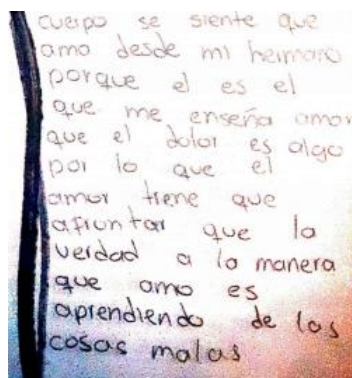 cuerpo se siente que
amo desde mi hermano
porque el es el
que me enseña amor
que el dolor es algo
por lo que el
amor tiene que
afrontar que la
verdad a la manera
que amo es
aprendiendo de las
cosas malas